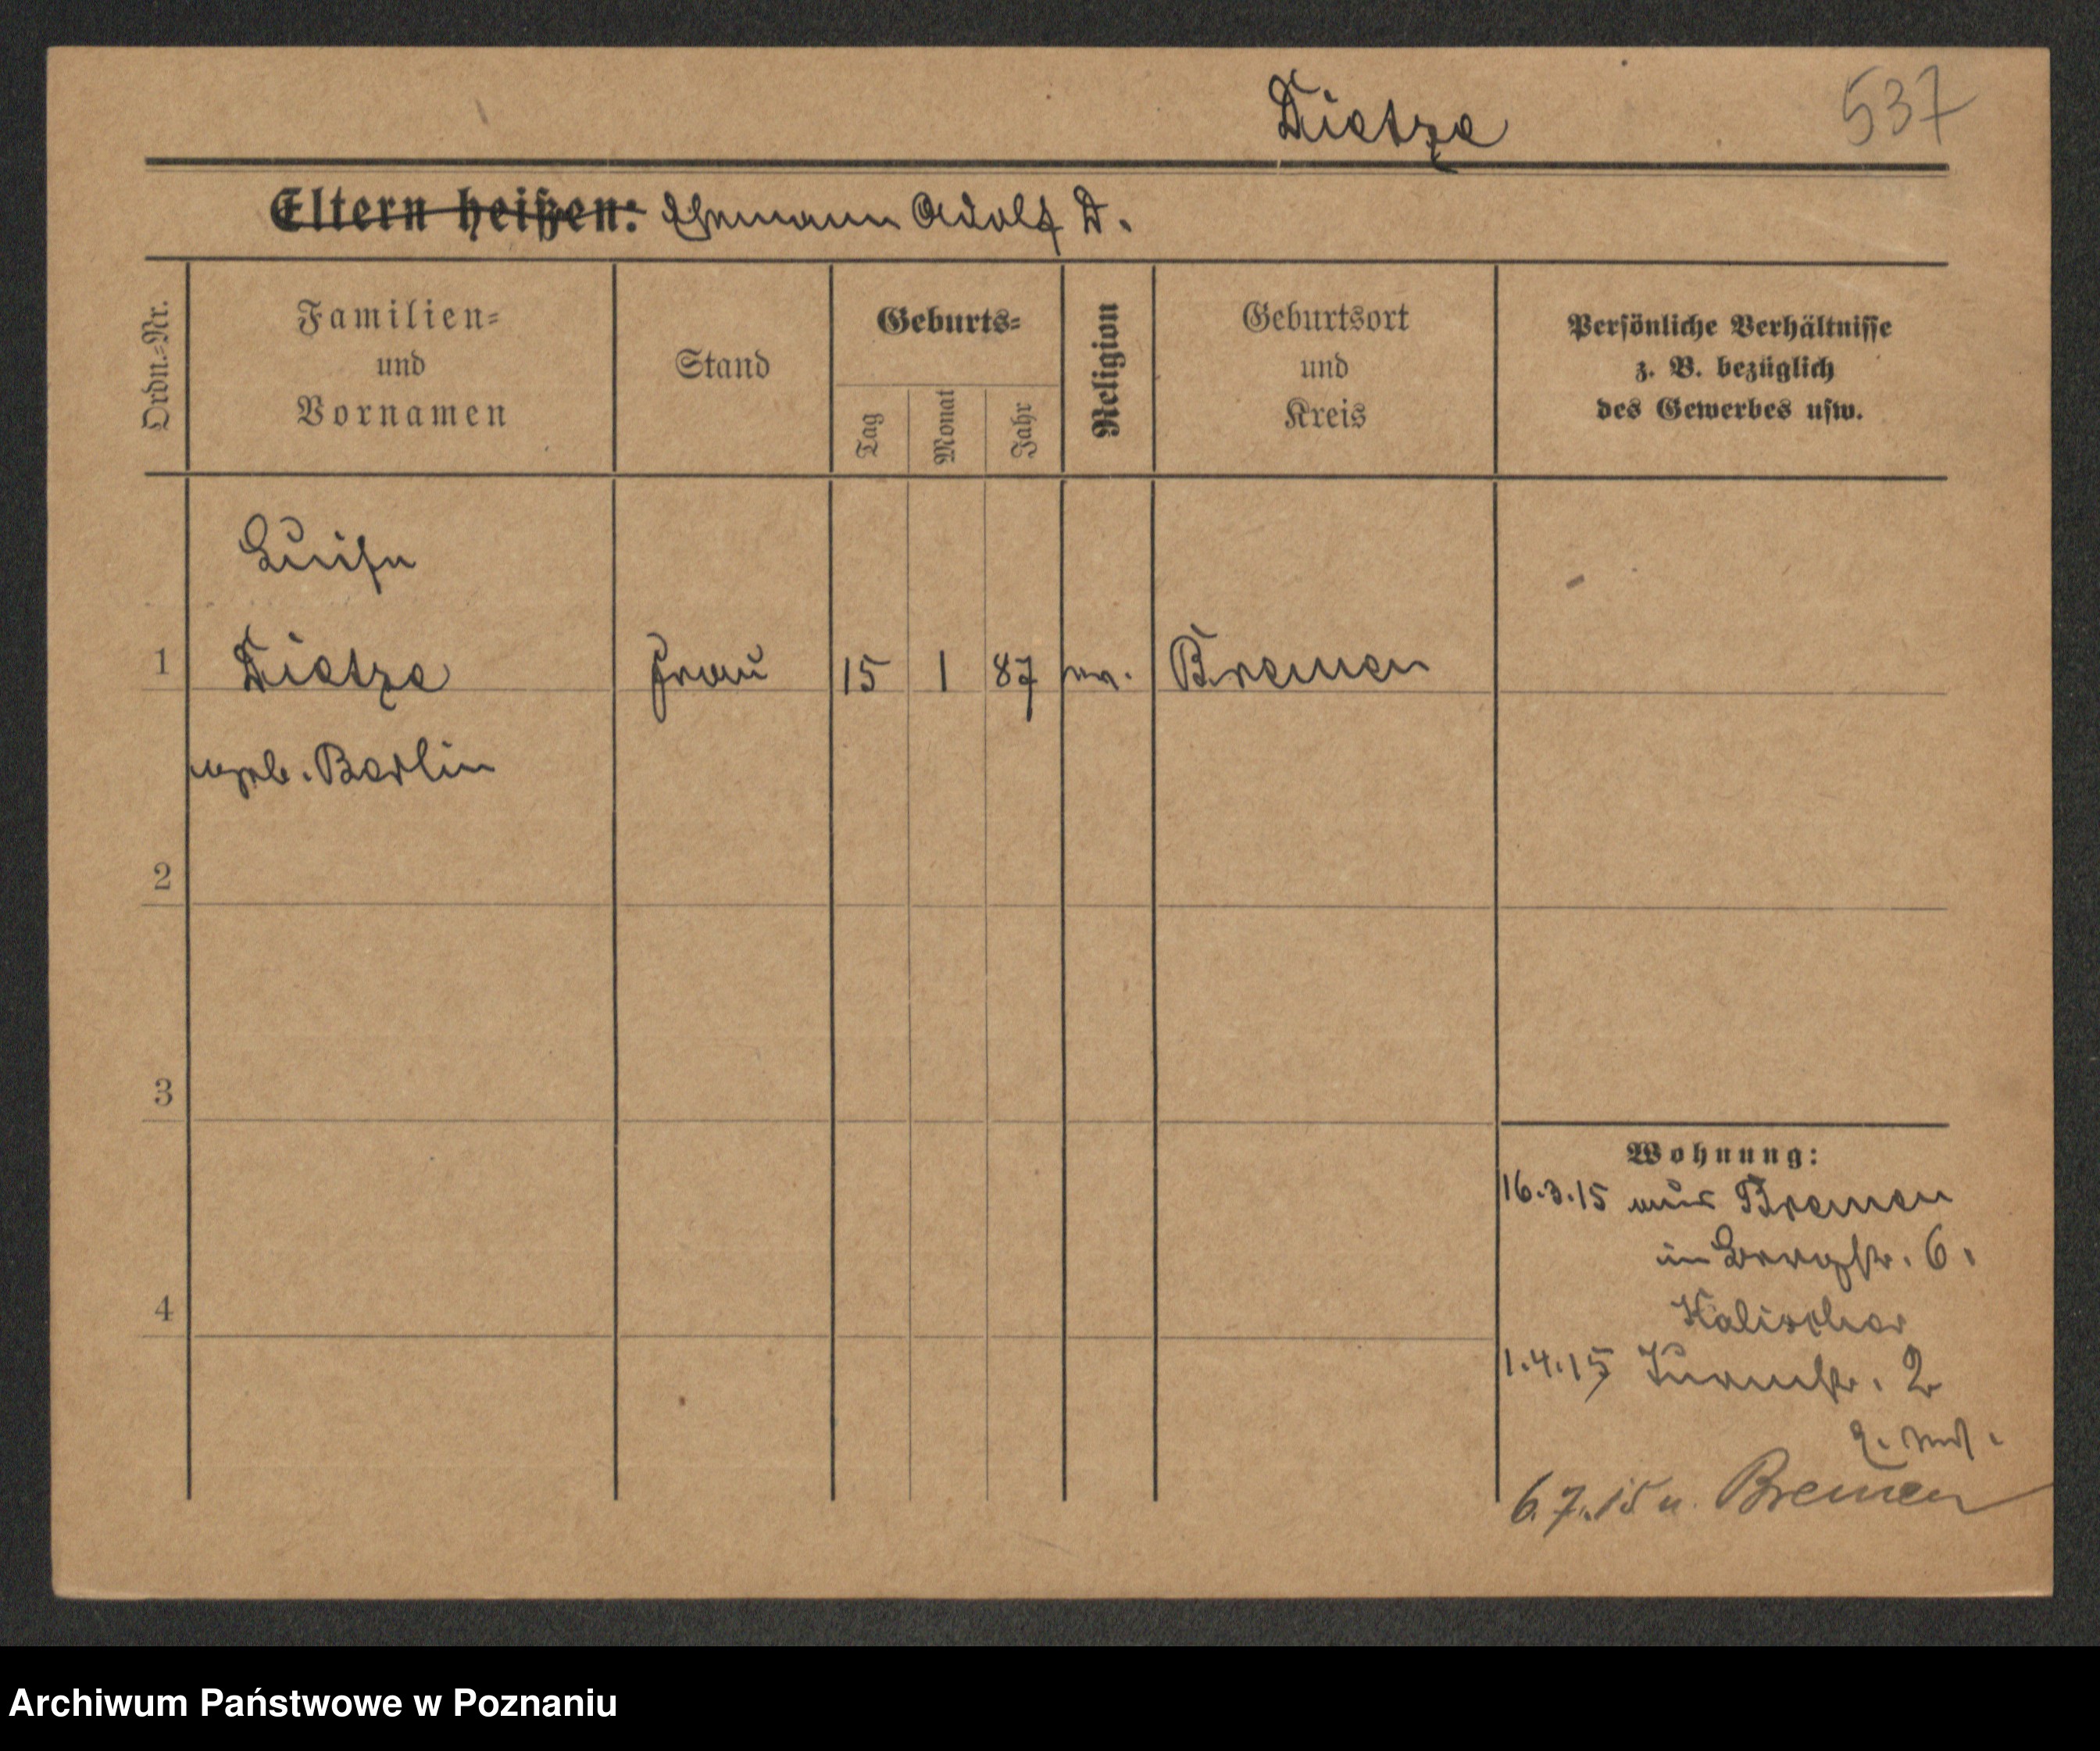 Dietze
537
Eltern heißen: Ehemann Adolf D.
Ordn.-Nr.
Familien-
und
Vornamen
Stand
Geburts-
Tag
Monat
Jahr
Religion
Geburtsort
und
Kreis
Persönliche Verhältnisse
z. B. bezüglich
des Gewerbes usw.
Luise
1 Dietze Frau 15 1 87 ev. Bremen
geb. Berlin
2
3
4
Wohnung:
16.3.15 aus Bremen
in Bergstr. 6.
Kalischer
1.4.15 Turmstr. 2
6.7.15 n. Bremen
Archiwum Państwowe w Poznaniu